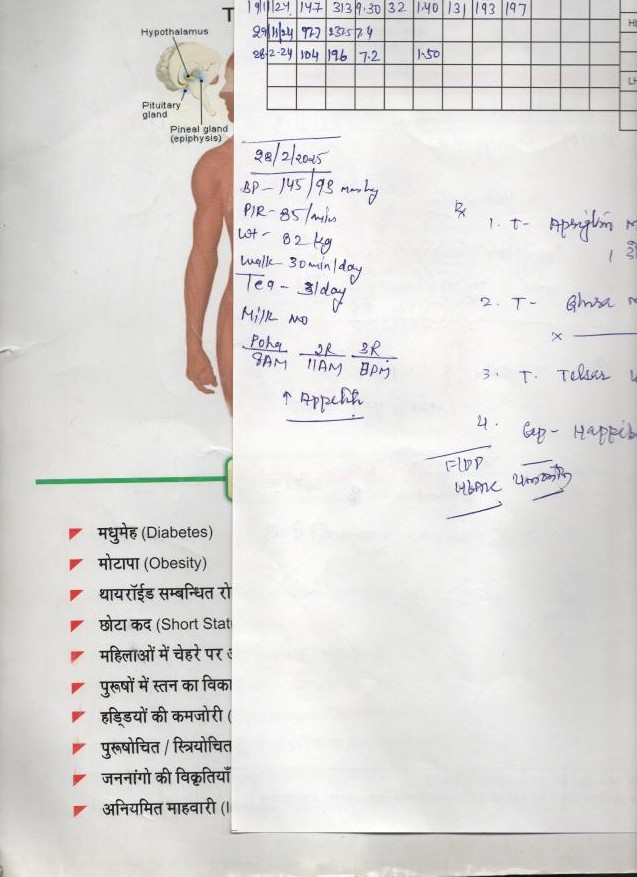 T
Hypothalamus
Pituitary
gland
Pineal gland
(epiphysis)
19/11/24 147 313 9.30 32 1.40 131 193 197
29/11/24 7.4
28-2-24 104 196 7.2 1.50
28/2/2025
BP - 145/93 mmHg
P/R - 85/min
Wt - 82 kg
Walk - 30min/day
Tea - 3/day
Milk NO
Poha 2R 3R
8AM 11AM 8PM
↑ Appetite
Rx
1. T-
2. T-
x
3. T. Telsar
4. Cap-
HbA1c
मधुमेह (Diabetes)
मोटापा (Obesity)
थायरॉईड सम्बन्धित रो
छोटा कद (Short Stat
महिलाओं में चेहरे पर
पुरूषों में स्तन का विका
हड्डियों की कमजोरी (
पुरूषोचित / स्त्रियोचित
जननांगो की विकृतियाँ
अनियमित माहवारी (I